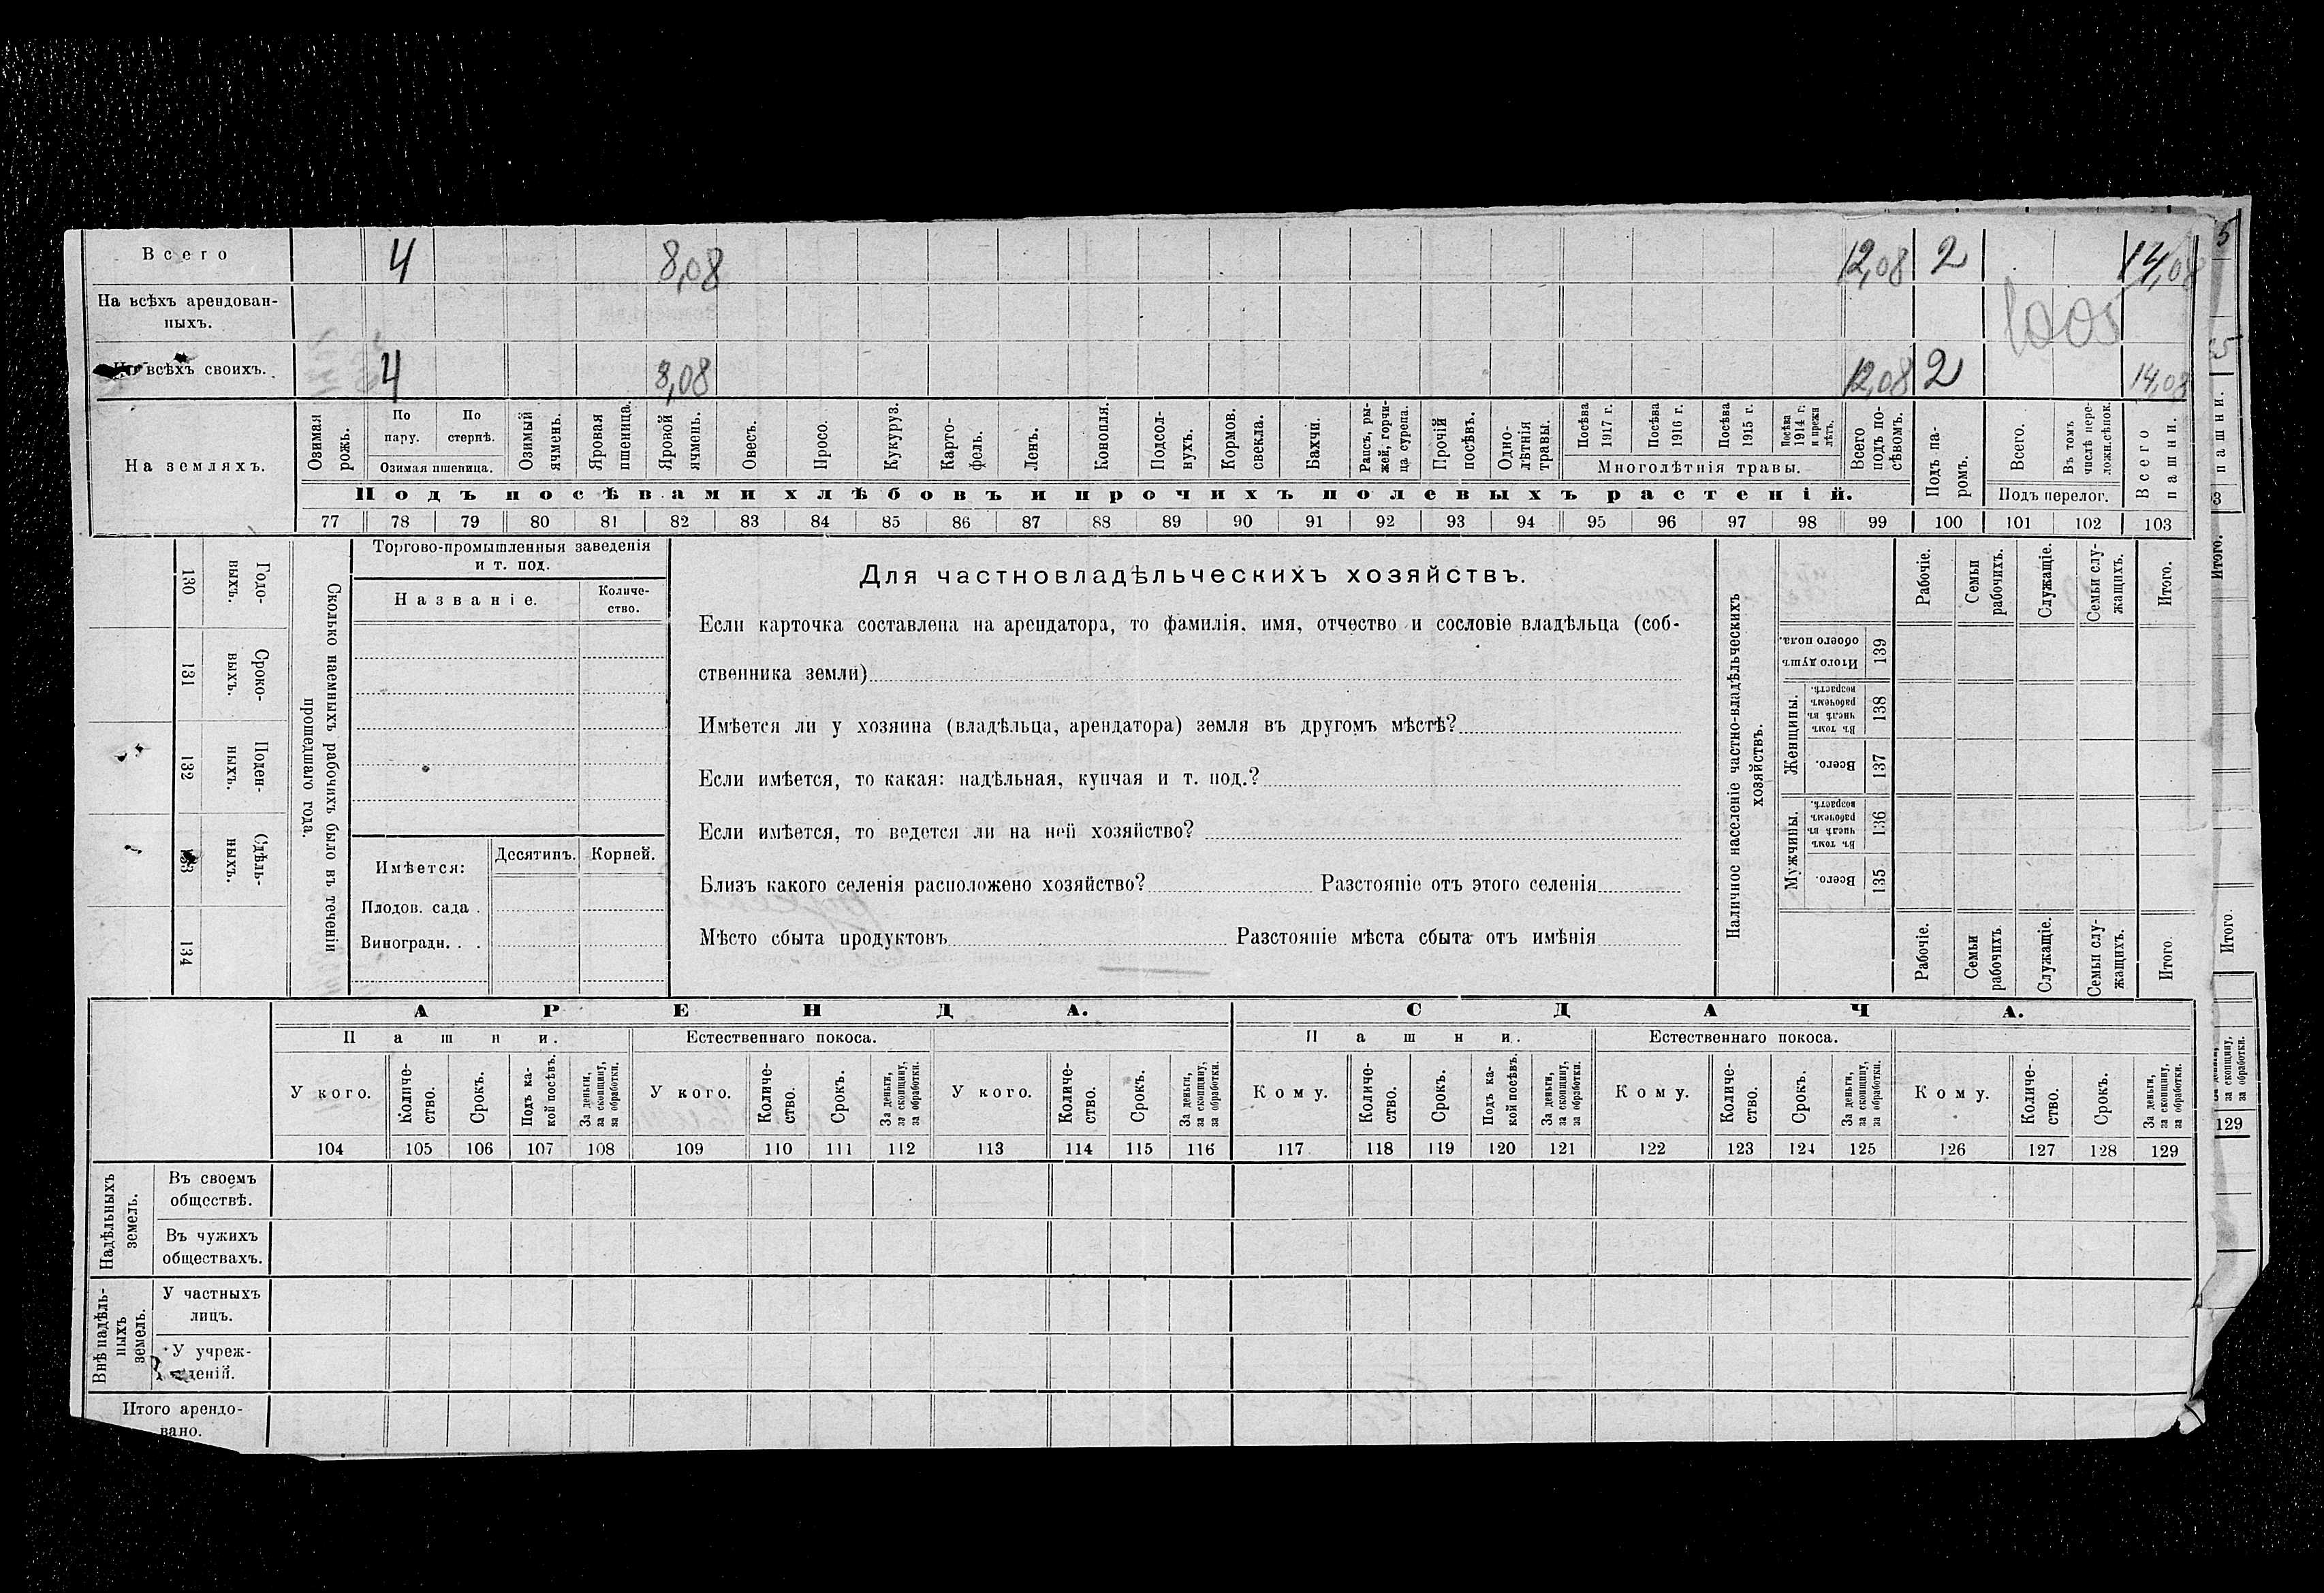 Всего 4 8,08 12,08 2 14,08
На всѣхъ арендован-
ныхъ.
1005
всѣхъ своихъ. 4 8,08 12,08 2 14,08
На земляхъ.
Озимая рожь.
По пару.
По стернѣ.
Озимая пшеница.
Озимый ячмень.
Яровая пшеница.
Яровой ячмень.
Овесъ.
Просо.
Кукуруз.
Карто-
фель.
Ленъ.
Конопля.
Подсол-
нухъ.
Кормов. свекла.
Бахчи.
Рапсъ, ры-
жей, горчи-
ца сурепа.
Прочій посѣвъ.
Одно-
лѣтнія
травы.
Посѣва 1917 г.
Посѣва 1916 г.
Посѣва 1915 г.
Посѣва 1914 г. и прежн лѣтъ.
Многолѣтнія травы.
Всего
подъ по-
сѣвомъ.
Подъ па-
ромъ.
Всего.
Въ томъ
числѣ пере-
ложн.сѣнок.
Подъ перелог.
Всего пашни.
Подъ посѣвами хлѣбовъ и прочихъ полевыхъ растеній.
77 78 79 80 81 82 83 84 85 86 87 88 89 90 91 92 93 94 95 96 97 98 99 100 101 102 103
Годо-
выхъ.
130
Сроко-
выхъ.
131
Поден-
ныхъ.
132
Сдѣль-
ныхъ.
133
134
Сколько наемныхъ рабочихъ было въ теченіи
прошедшаго года.
Торгово-промышленныя заведенія
и т. под.
Названіе.
Количе-
ство.
Имѣется:
Десятинъ.
Корней.
Плодов. сада .
Виноградн. . .
Для частновладѣльческихъ хозяйствъ.
Если карточка составлена на арендатора, то фамилія, имя, отчество и сословіе владѣльца (соб-
ственника земли)
Имѣется ли у хозяина (владѣльца, арендатора) земля въ другомъ мѣстѣ?
Если имѣется, то какая: надѣльная, купчая и т. под.?
Если имѣется, то ведется ли на ней хозяйство?
Близъ какого селенія расположено хозяйство? Разстояніе отъ этого селенія
Мѣсто сбыта продуктовъ Разстояніе мѣста сбыта отъ имѣнія
Наличное населеніе частно-владѣльческихъ
хозяйствъ.
Рабочіе.
Семьи рабочихъ.
Служащіе.
Семьи слу-
жащихъ.
Итого.
Итого душъ обоего пола.
139
Женщины.
Въ томъ числѣ въ рабочемъ возрастѣ.
138
Всего.
137
Мужчины.
Въ томъ числѣ въ рабочемъ возрастѣ.
136
Всего.
135
Рабочіе.
Семьи рабочихъ.
Служащіе.
Семьи слу-
жащихъ.
Итого.
АРЕНДА. СДАЧА.
Пашни. Естественнаго покоса. Пашни. Естественнаго покоса.
У кого.
Количе-
ство.
Срокъ.
Подъ ка-
кой посѣвъ.
За деньги,
за скопщину,
за обработки.
У кого.
Количе-
ство.
Срокъ.
За деньги,
за скопщину,
за обработки.
У кого.
Количе-
ство.
Срокъ.
За деньги,
за скопщину,
за обработки.
Кому.
Количе-
ство.
Срокъ.
Подъ ка-
кой посѣвъ.
За деньги,
за скопщину,
за обработки.
Кому.
Количе-
ство.
Срокъ.
За деньги,
за скопщину,
за обработки.
Кому.
Количе-
ство.
Срокъ.
За деньги,
за скопщину,
за обработки.
104 105 106 107 108 109 110 111 112 113 114 115 116 117 118 119 120 121 122 123 124 125 126 127 128 129
Надѣльныхъ
земель.
Въ своемъ
обществѣ.
Въ чужихъ
обществахъ.
Внѣ надѣль-
ныхъ
земель.
У частныхъ
лицъ.
У учреж-
деній.
Итого арендо-
вано.
5
5
пашни.
Итого.
Итого.
за скопщину,
за обработки.
129